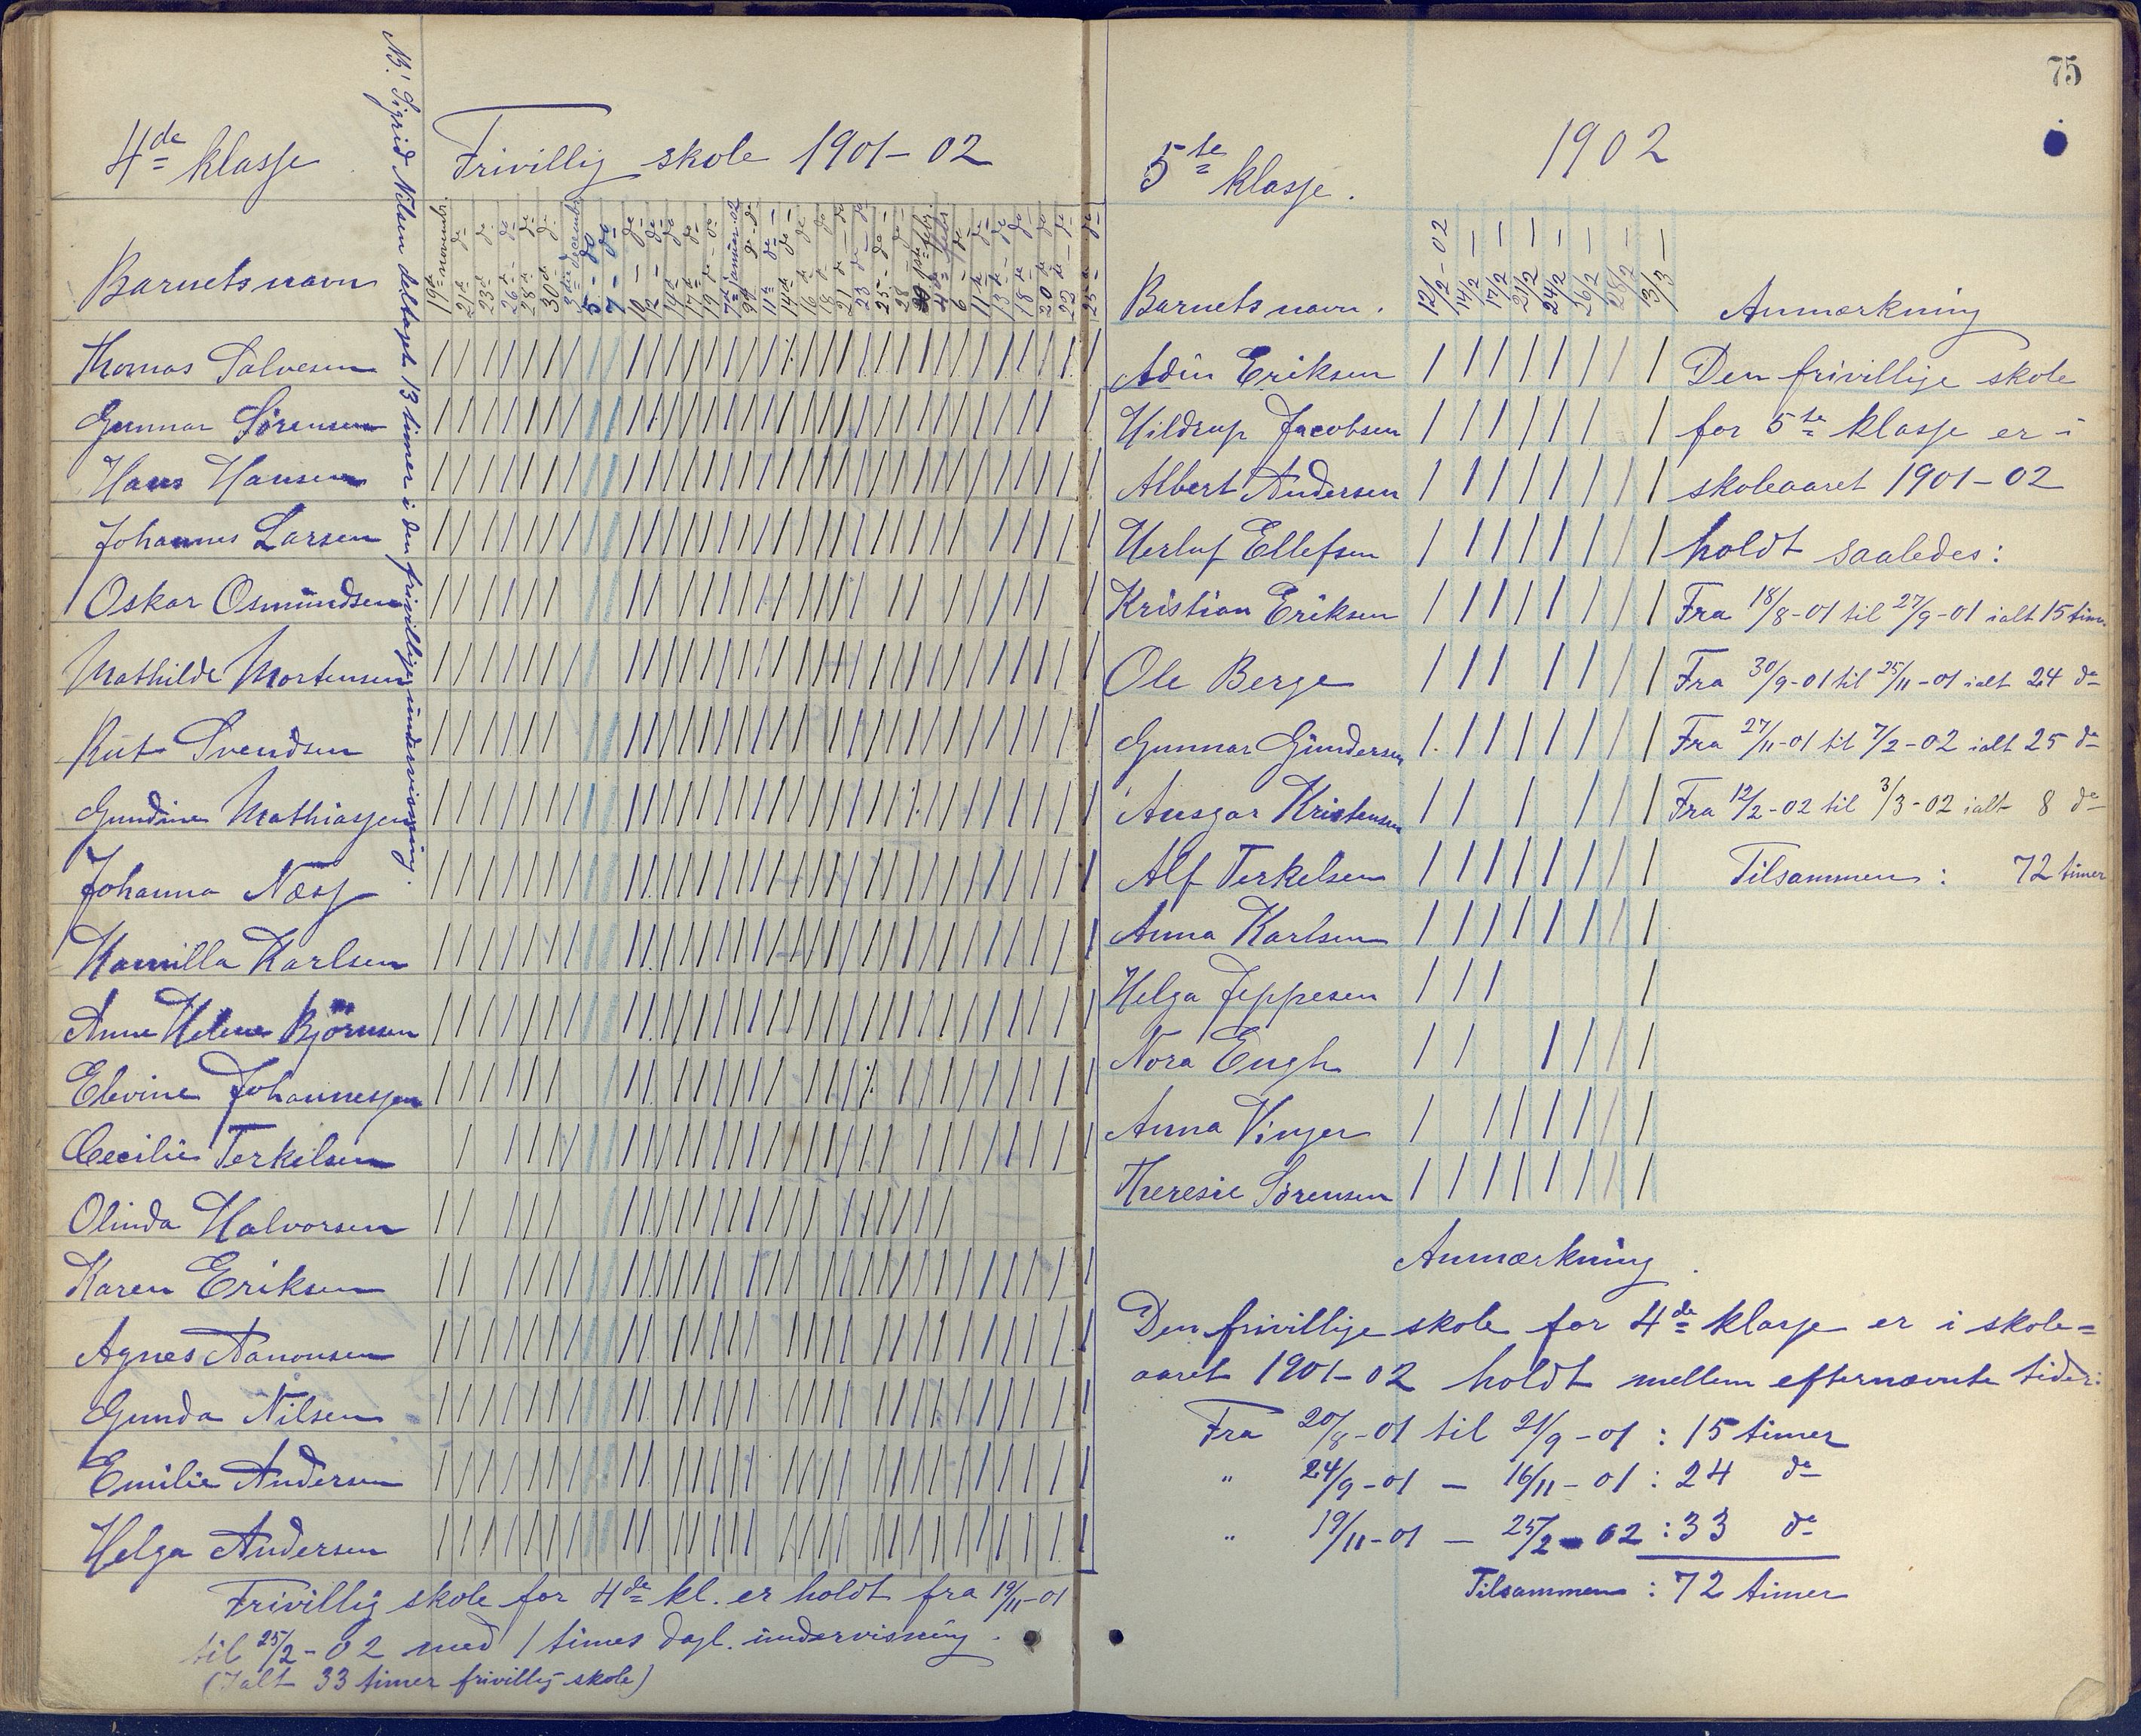 4de klasse
Frivillig skole 1901-02
NB! Sigrid Nilsen deltaget 13 timer i den frivillige undervisning.
Barnets navn
19de novembr.
21de do
23de do
26de do
28de do
30de do
3die decembr.
5 - do
7 - do
10 - do
12 - do
14de do
17de do
19de - do
7de januar 02
9de do
11te do
14de do
16de do
18de do
21de do
23de do
25 - do
28 - do
1ste febr.
4de febr.
6 - do
11te do
13de do
18de do
20de do
22de do
25de do
Thomas Salvesen
Gunnar Sørensen
Hans Hansen
Johannes Larsen
Oskar Osmundsen
Mathilde Mortensen
Rut Svendsen
Gundine Mathiassen
Johanna Næss
Kamilla Karlsen
Anne Helene Bjørnsen
Elevine Johannessen
Cecilie Terkelsen
Olinda Halvorsen
Karen Eriksen
Agnes Aanonsen
Gunda Nilsen
Emilie Andersen
Helga Andersen
Frivillig skole for 4de kl. er holdt fra 19/11-01
til 25/2-02 med 1 times dagl. undervisning.
(Ialt 33 timer frivillig skole)
75
5te klasse.
1902
Barnets navn.
12/2-02
14/2 -
17/2 -
21/2 -
24/2 -
26/2 -
28/2 -
3/3 -
Anmærkning
Adin Eriksen
Hildrup Jacobsen
Albert Andersen
Herluf Ellefsen
Kristian Eriksen
Ole Berge
Gunnar Gundersen
Ansgar Kristensen
Alf Terkelsen
Anna Karlsen
Helga Jeppesen
Nora Engh
Anna Vinger
Theresie Sørensen
Den frivillige skole
for 5te klasse er i
skoleaaret 1901-02
holdt saaledes:
Fra 18/8-01 til 27/9-01 ialt 15 tim.
Fra 30/9-01 til 25/11-01 ialt 24 do
Fra 27/11-01 til 7/2-02 ialt 25 do
Fra 12/2-02 til 3/3-02 ialt 8 do
Tilsammen: 72 timer
Anmærkning.
Den frivillige skole for 4de klasse er i skole=
aaret 1901-02 holdt mellem efternævnte tider:
Fra 20/8-01 til 21/9-01: 15 timer
" 24/9-01 - 16/11-01: 24 do
" 19/11-01 - 25/2-02: 33 do
Tilsammen: 72 timer